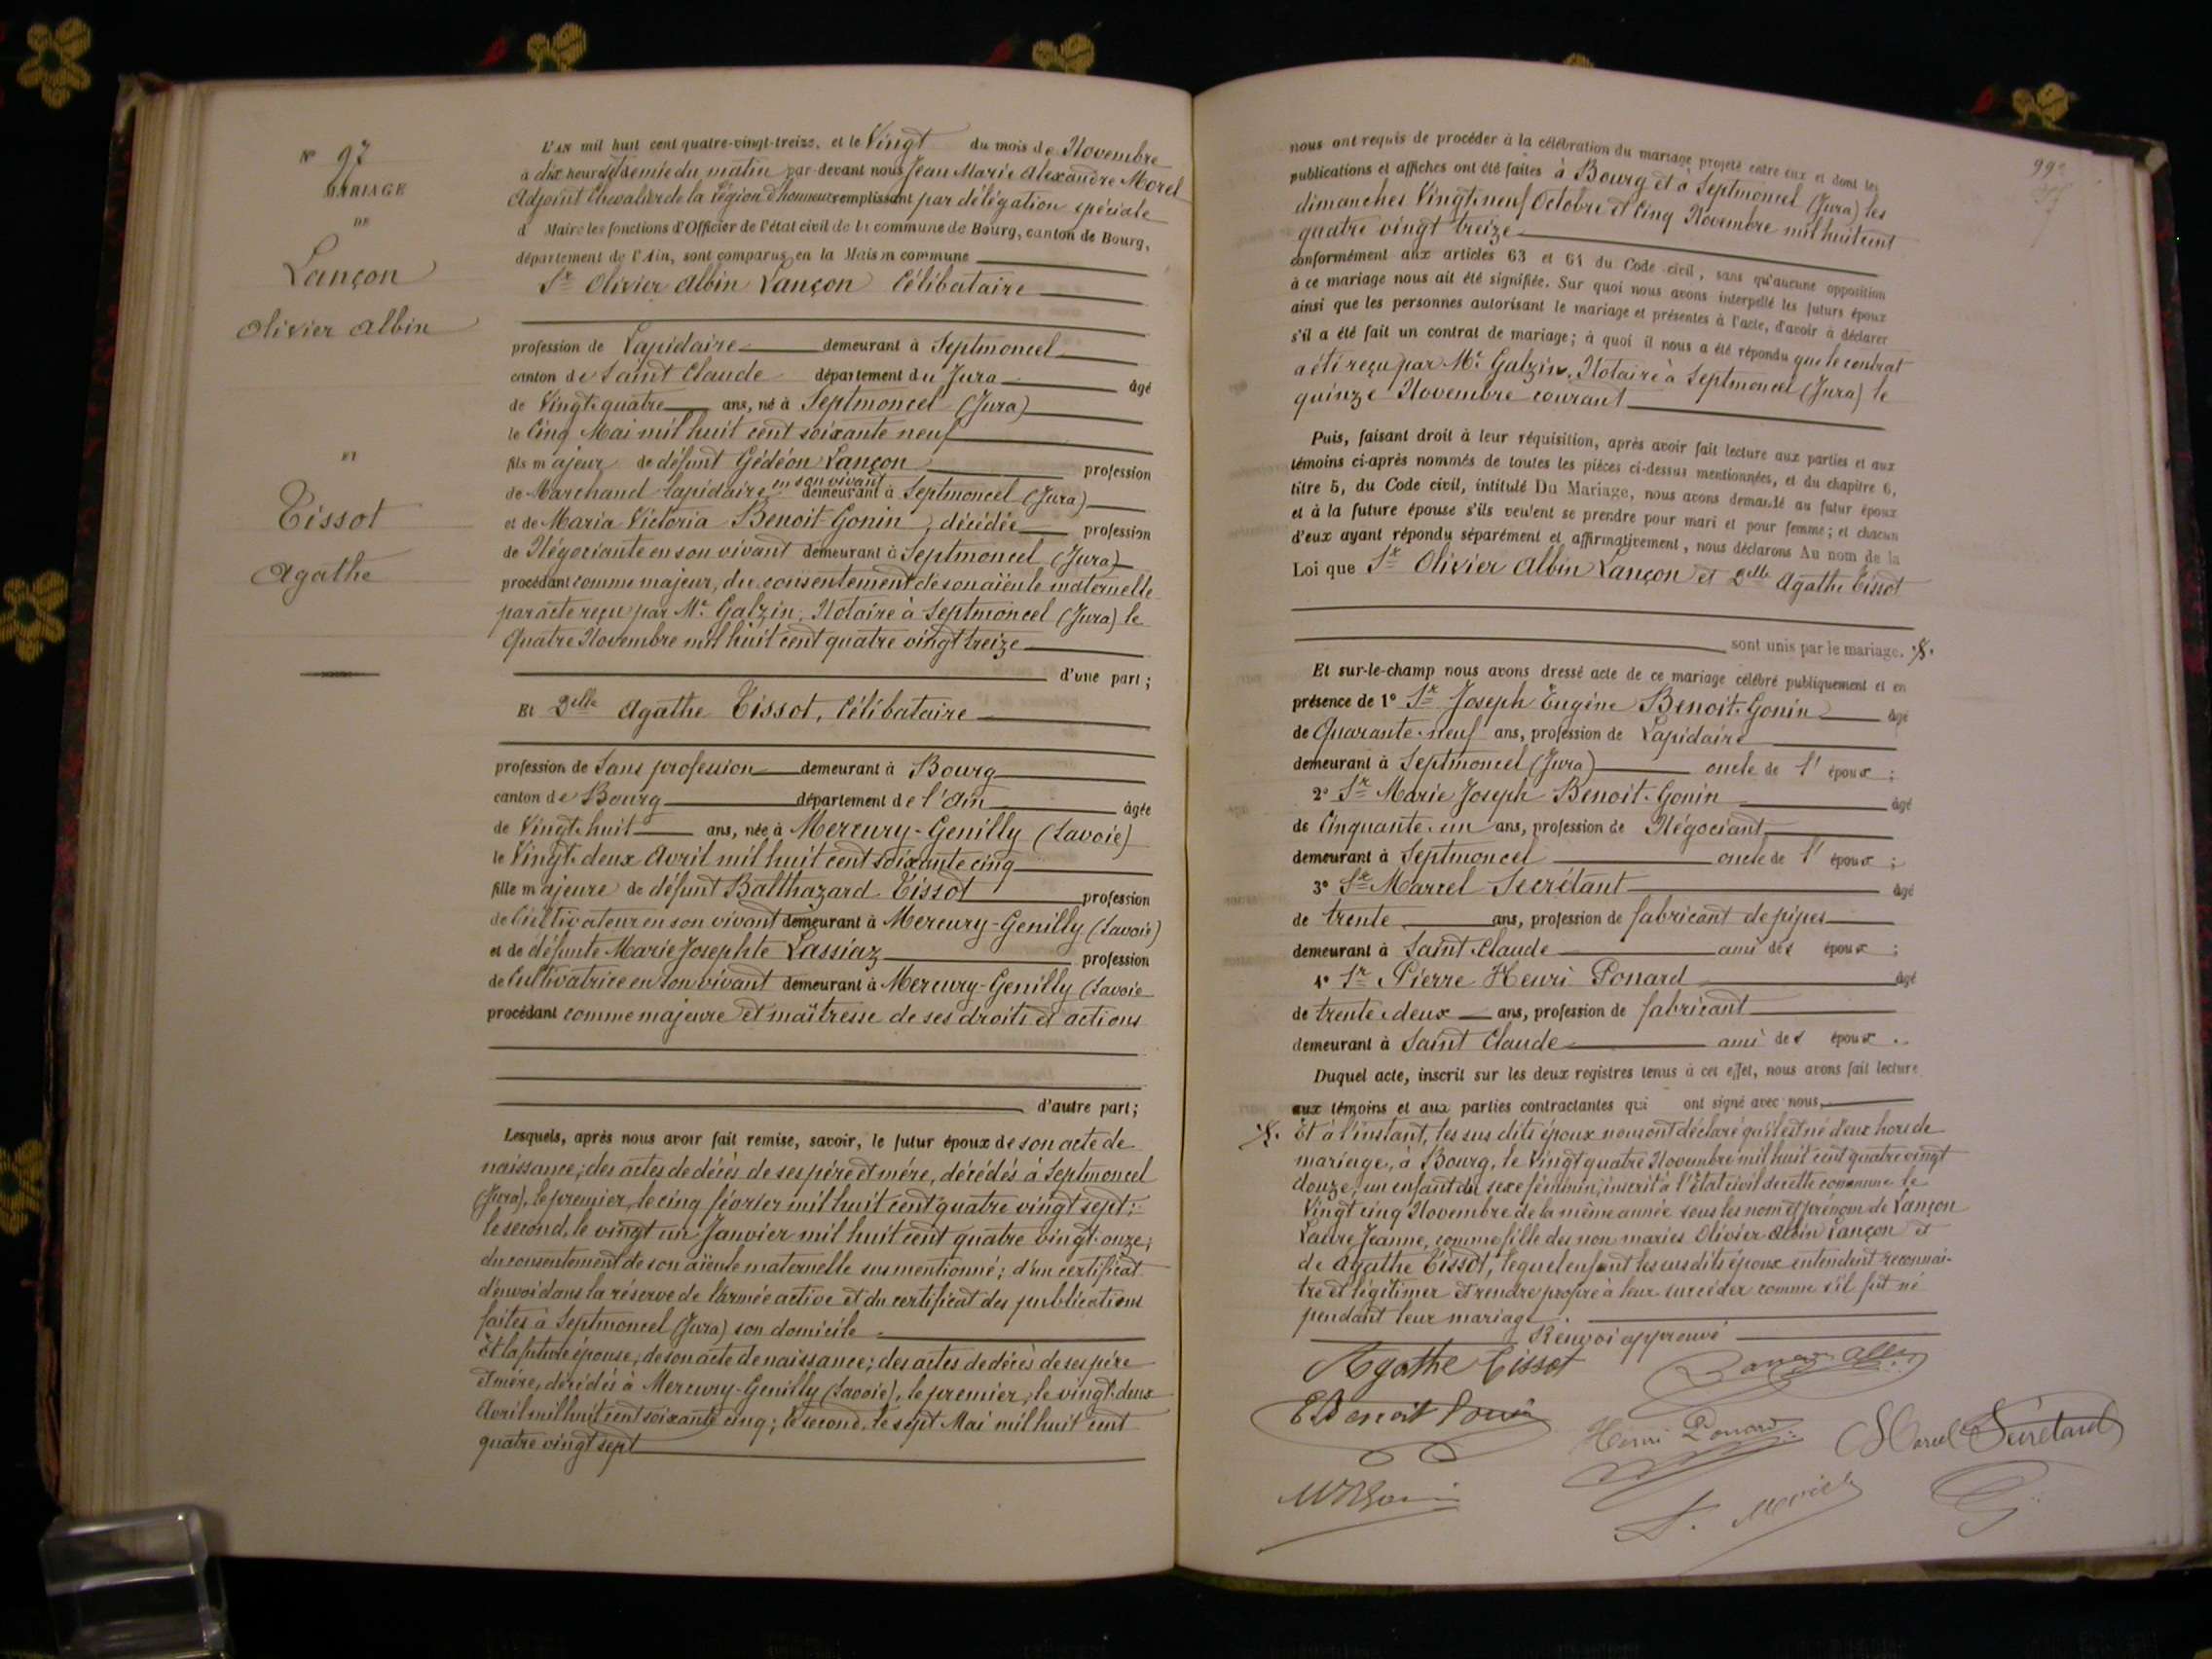 N° 97
MARIAGE
DE
Lançon
Olivier Albin
ET
Tissot
Agathe
L'AN mil huit cent quatre-vingt-treize, et le Vingt du mois de Novembre
à dix heures et demie du matin par-devant nous Jean Marie Alexandre Morel
Adjoint Chevalier de la Légion d'honneur remplissant par délégation spéciale
d Maire les fonctions d'Officier de l'état civil de la commune de Bourg, canton de Bourg,
département de l'Ain, sont comparus en la Maison commune
Sr Olivier Albin Lançon Célibataire
profession de Lapidaire demeurant à Septmoncel
canton de Saint Claude département du Jura âgé
de Vingt-quatre ans, né à Septmoncel (Jura)
le Cinq Mai mil huit cent soixante neuf
fils majeur de défunt Gédéon Lançon profession
de Marchand lapidaire en son vivant demeurant à Septmoncel (Jura)
et de Maria Victoria Benoit-Gonin, décédée profession
de Négociante en son vivant demeurant à Septmoncel (Jura)
procédant comme majeur, du consentement de son aïeule maternelle
par acte reçu par Me Galzin, Notaire à Septmoncel (Jura) le
Quatre Novembre mil huit cent quatre vingt treize
d'une part;
Et Delle Agathe Tissot, Célibataire
profession de Sans profession demeurant à Bourg
canton de Bourg département de l'Ain âgée
de Vingt-huit ans, née à Mercury-Gemilly (Savoie)
le Vingt-deux Avril mil huit cent soixante cinq
fille majeure de défunt Balthazard Tissot profession
de Cultivateur en son vivant demeurant à Mercury-Gemilly (Savoie)
et de défunte Marie Josephte Lassiaz profession
de Cultivatrice en son vivant demeurant à Mercury-Gemilly (Savoie
procédant comme majeure et maîtresse de ses droits et actions
d'autre part;
Lesquels, après nous avoir fait remise, savoir, le futur époux de son acte de
naissance; des actes de décès de ses père et mère, décédés à Septmoncel
(Jura), le premier, le cinq février mil huit cent quatre vingt sept;
le second, le vingt un Janvier mil huit cent quatre vingt-onze;
du consentement de son aïeule maternelle susmentionné; d'un certificat
d'envoi dans la réserve de l'armée active et du certificat des publications
faites à Septmoncel (Jura) son domicile
Et la future épouse, de son acte de naissance; des actes de décès de ses père
et mère, décédés à Mercury-Gemilly (Savoie), le premier, le vingt-deux
Avril mil huit cent soixante cinq; le second, le sept Mai mil huit cent
quatre vingt sept
99
nous ont requis de procéder à la célébration du mariage projeté entre eux et dont les
publications et affiches ont été faites à Bourg et à Septmoncel (Jura) les
dimanches Vingt-neuf Octobre et Cinq Novembre mil huit cent
quatre vingt treize
conformément aux articles 63 et 64 du Code civil, sans qu'aucune opposition
à ce mariage nous ait été signifiée. Sur quoi nous avons interpellé les futurs époux
ainsi que les personnes autorisant le mariage et présentes à l'acte, d'avoir à déclarer
s'il a été fait un contrat de mariage; à quoi il nous a été répondu que le contrat
a été reçu par Me Galzin, Notaire à Septmoncel (Jura) le
quinze Novembre courant
Puis, faisant droit à leur réquisition, après avoir fait lecture aux parties et aux
témoins ci-après nommés de toutes les pièces ci-dessus mentionnées, et du chapitre 6,
titre 5, du Code civil, intitulé Du Mariage, nous avons demandé au futur époux
et à la future épouse s'ils veulent se prendre pour mari et pour femme; et chacun
d'eux ayant répondu séparément et affirmativement, nous déclarons Au nom de la
Loi que Sr Olivier Albin Lançon et Delle Agathe Tissot
sont unis par le mariage.
Et sur-le-champ nous avons dressé acte de ce mariage célébré publiquement et en
présence de 1° Sr Joseph Eugène Benoit-Gonin âgé
de Quarante-neuf ans, profession de Lapidaire
demeurant à Septmoncel (Jura) oncle de l'époux;
2° Sr Marie Joseph Benoit-Gonin âgé
de Cinquante-un ans, profession de Négociant
demeurant à Septmoncel oncle de l'époux;
3° Sr Marcel Secrétant âgé
de trente ans, profession de fabricant de pipes
demeurant à Saint-Claude ami des époux;
4° Sr Pierre Henri Ponard âgé
de trente-deux ans, profession de fabricant
demeurant à Saint Claude ami des époux.
Duquel acte, inscrit sur les deux registres tenus à cet effet, nous avons fait lecture
aux témoins et aux parties contractantes qui ont signé avec nous,
Et à l'instant, les sus dits époux nous ont déclaré qu'il est né d'eux hors de
mariage, à Bourg, le Vingt quatre Novembre mil huit cent quatre vingt
douze, un enfant du sexe féminin, inscrit à l'État civil de cette commune le
Vingt cinq Novembre de la même année sous les nom et prénom de Lançon
Laure Jeanne, comme fille des non mariés Olivier Albin Lançon et
de Agathe Tissot, lequel enfant les susdits époux entendent reconnaî-
tre et légitimer et rendre propre à leur succéder comme s'il fût né
pendant leur mariage.
Renvoi approuvé
Agathe Tissot
E Benoit Gonin
Henri Ponard
Marcel Secrétant